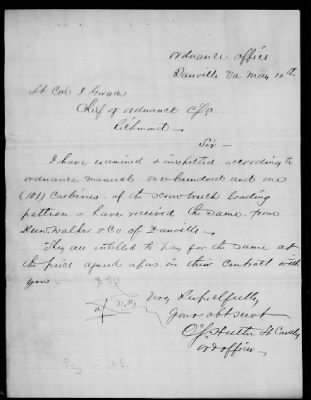 Ordnance Office
Danville Va May 10th
Lt Col J Gorgas
Chief of Ordnance CSA
Richmond
Sir
I have examined & inspected according to
ordnance manual one hundred and one
(101) Carbines of the screw breech loading
pattern & have received the same from
Keen Walker & Co of Danville
They are intitled to pay for the same at
the price agreed upon in their contract with
you.
Very Respectfully
Your obt servt
O'J.
Ord officer